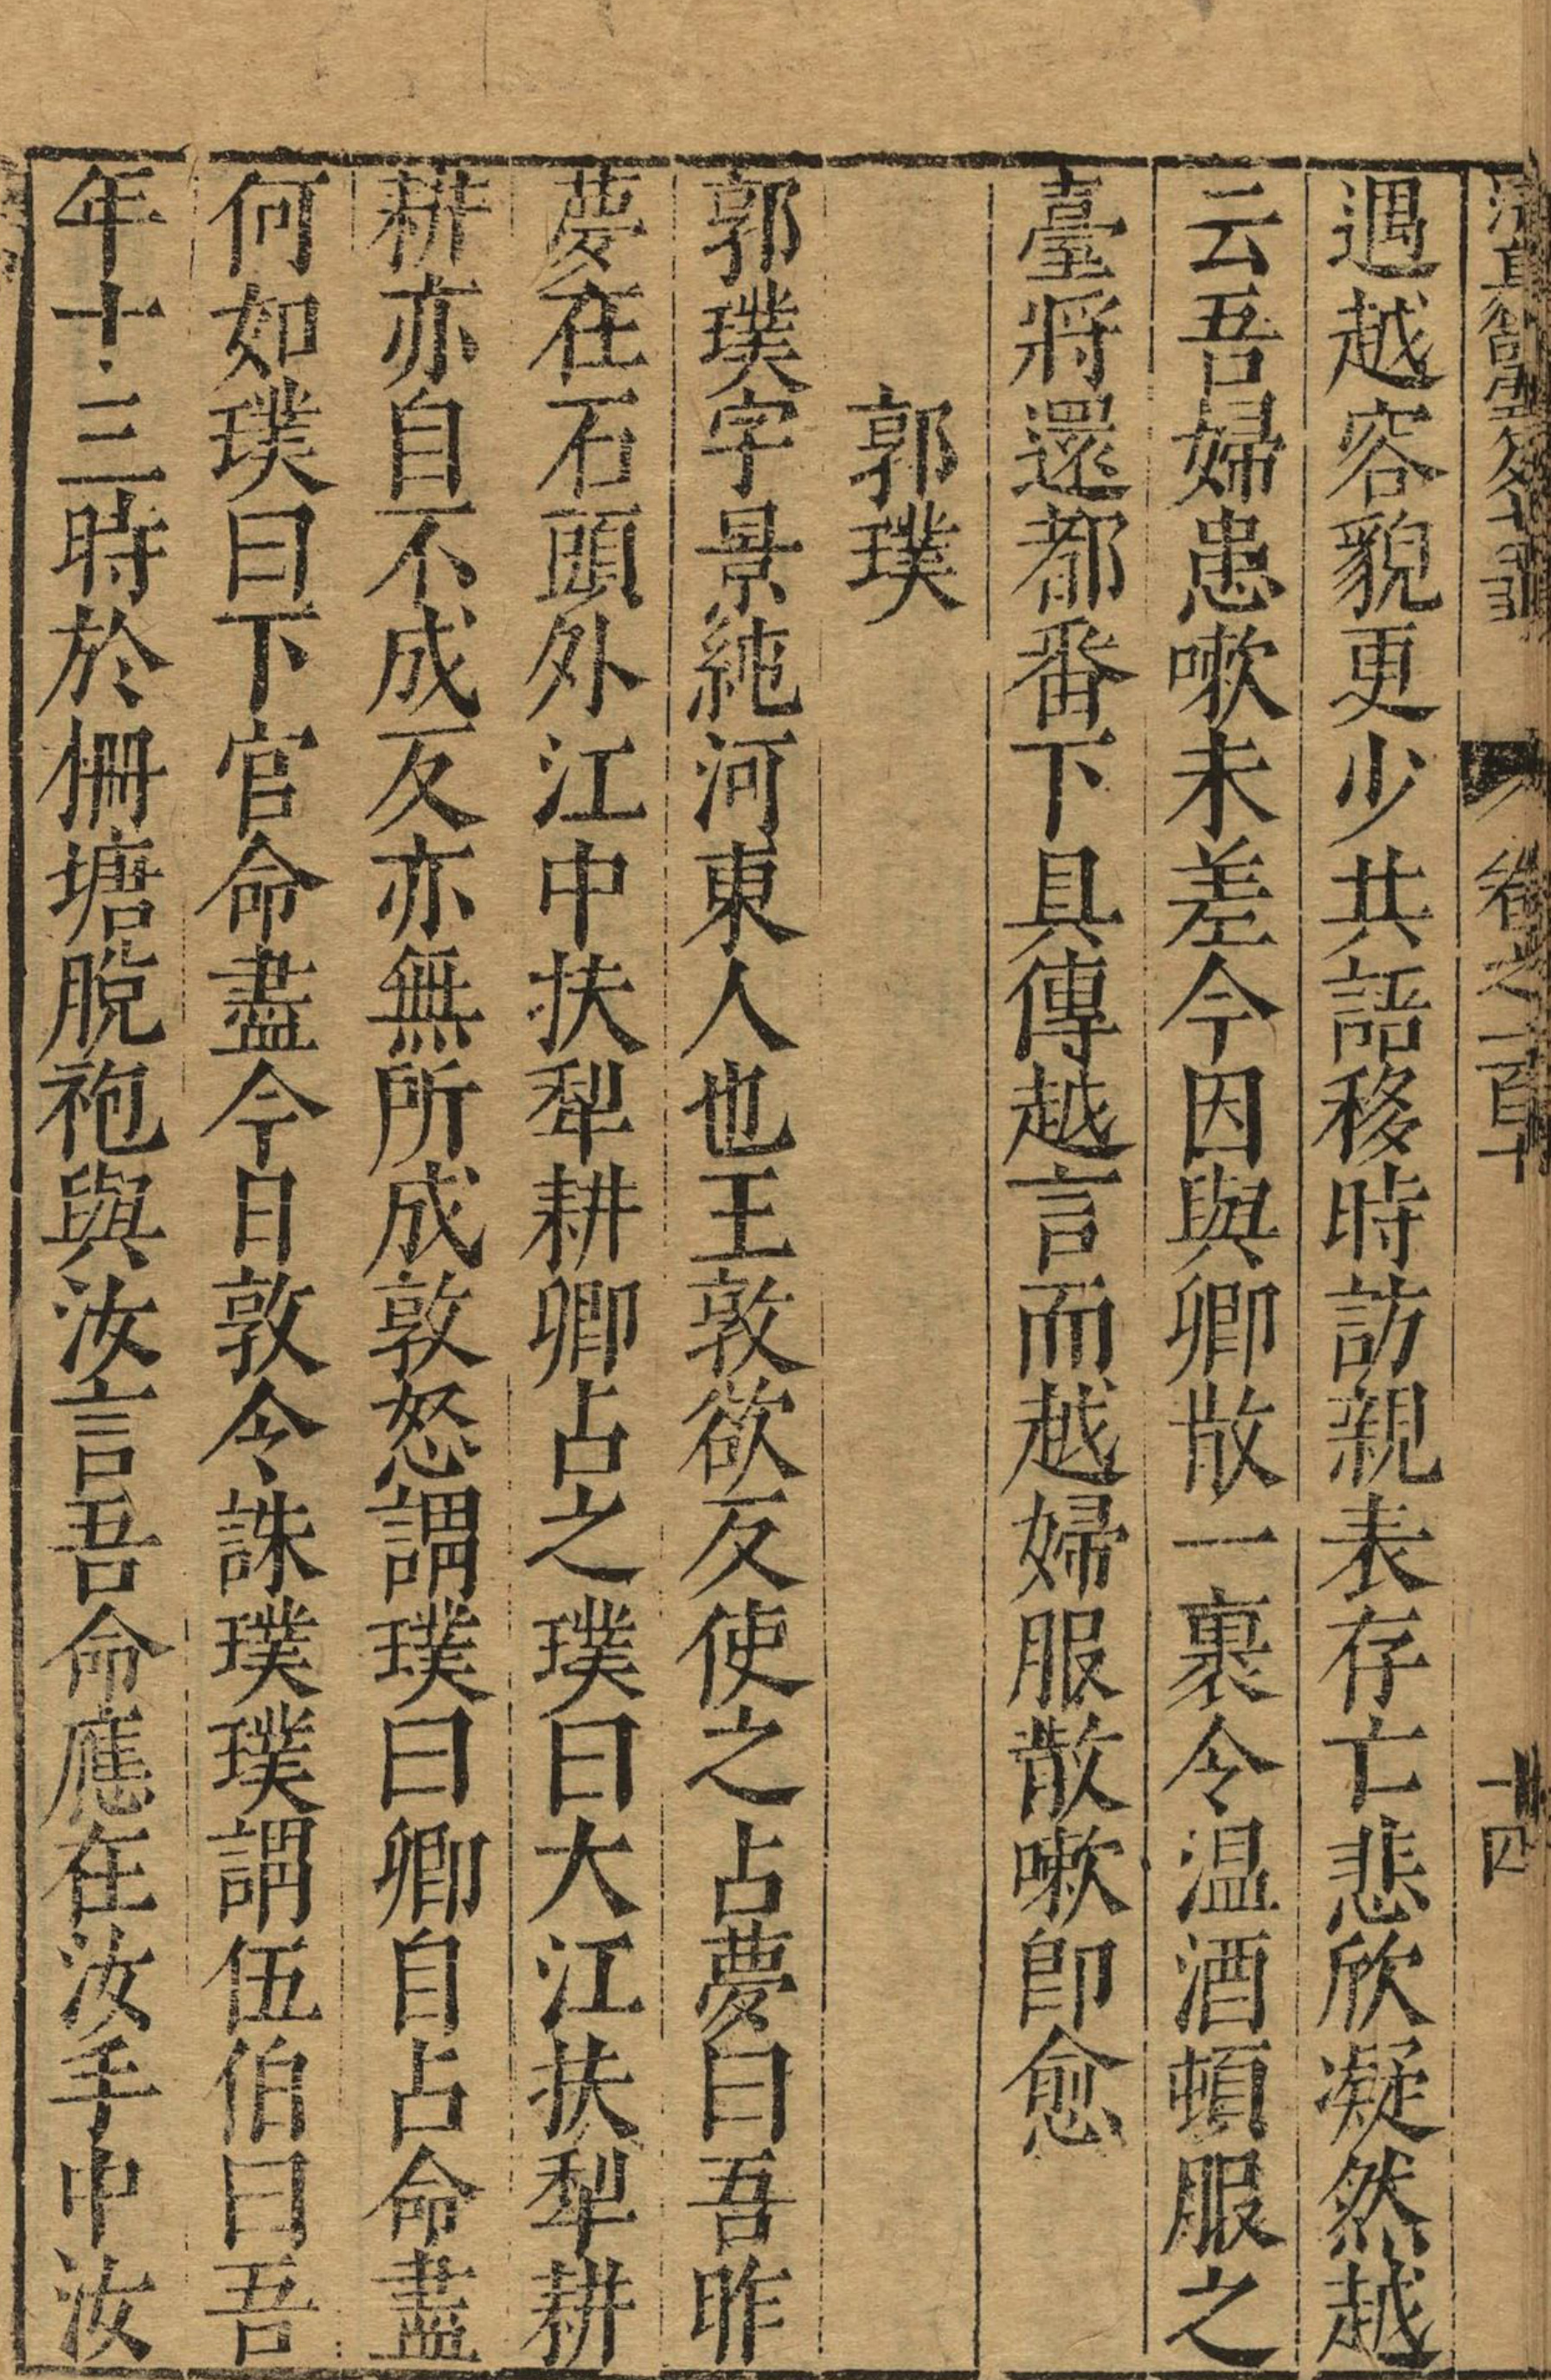 卷之一百十 十四
遇越容貌更少共語移時訪親表存亡悲欣凝然越
云吾婦患嗽未差今因與卿散一裹令温酒頓服之
臺將還都番下具傳越言而越婦服散嗽即愈
郭璞
郭璞字景純河東人也王敦欲反使之占夢曰吾昨
夢在石頭外江中扶犁耕卿占之璞曰大江扶犁耕
耕亦自不成反亦無所成敦怒謂璞曰卿自占命盡
何如璞曰下官命盡今日敦令誅璞璞謂伍伯曰吾
年十三時於柵塘脫袍與汝言吾命應在汝手中汝